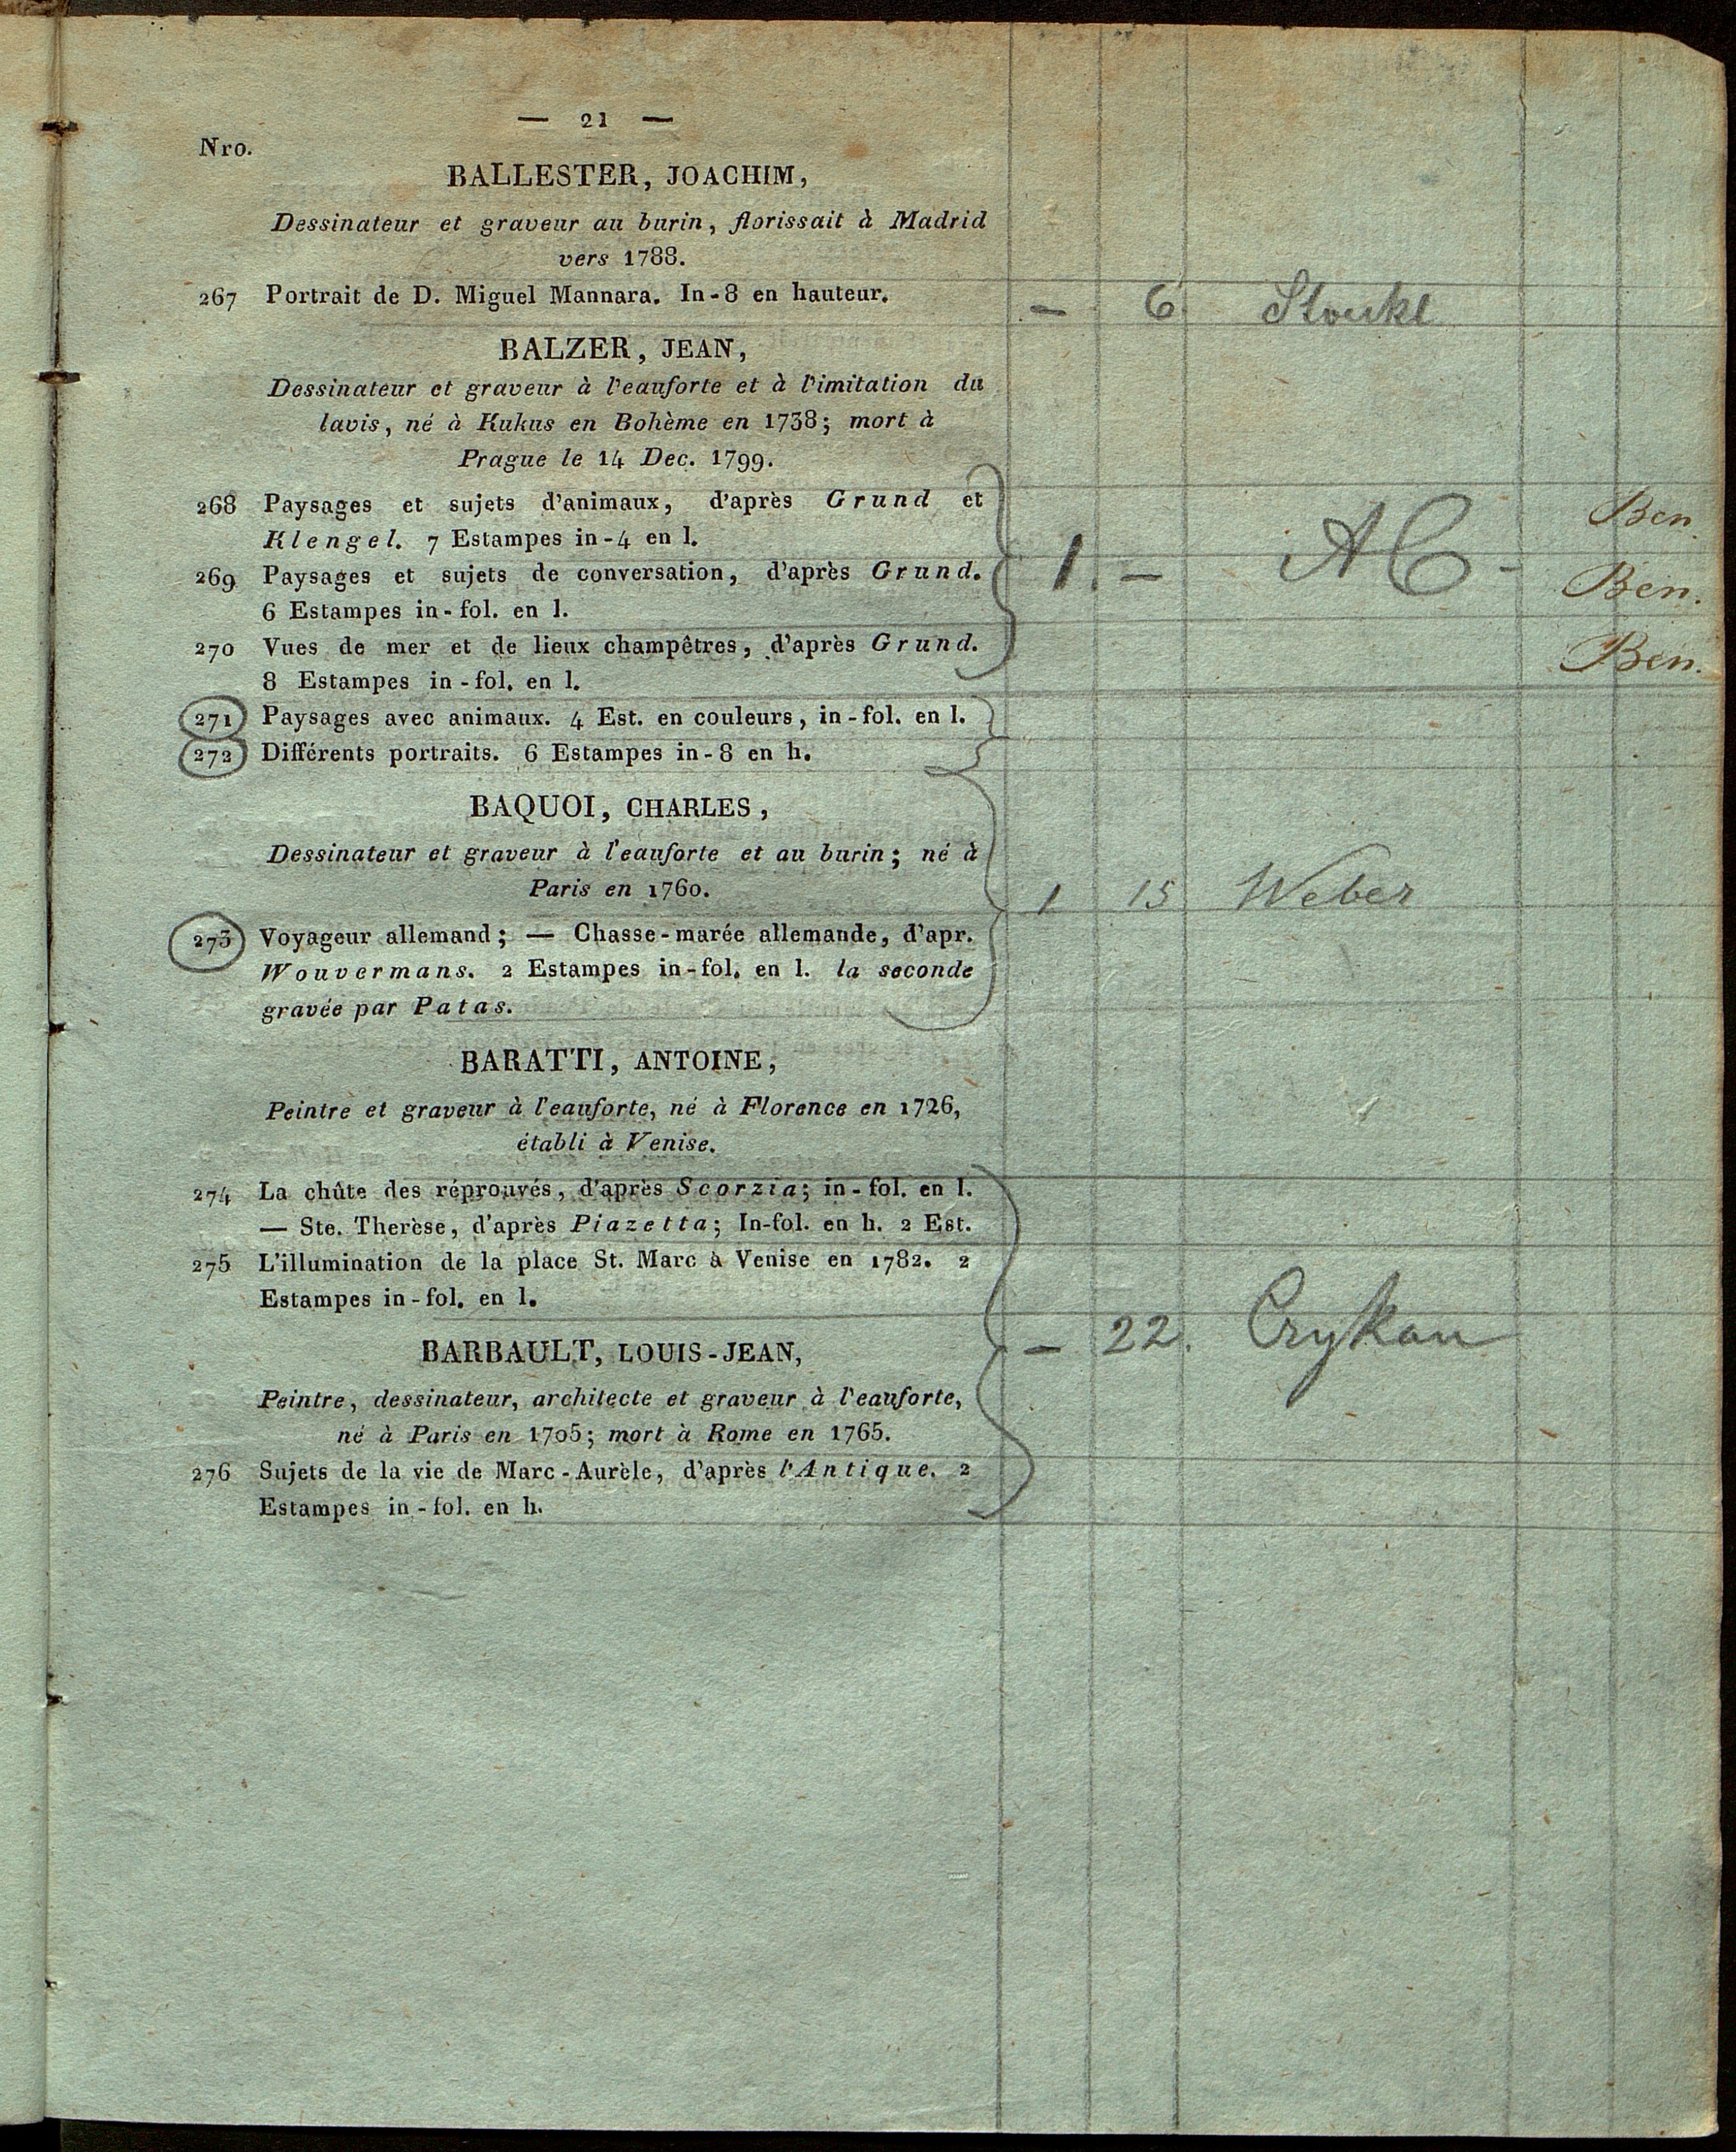 — 21 —
Nro.
BALLESTER, JOACHIM,
Dessinateur et graveur au burin, florissait à Madrid
vers 1788.
267 Portrait de D. Miguel Mannara. In-8 en hauteur. — 6
BALZER, JEAN,
Dessinateur et graveur à l'eauforte et à l'imitation du
lavis, né à Kukus en Bohème en 1738; mort à
Prague le 14 Dec. 1799.
268 Paysages et sujets d'animaux, d'après Grund et Ben.
Klengel. 7 Estampes in-4 en l.
269 Paysages et sujets de conversation, d'après Grund. 1. — AC - Ben.
6 Estampes in-fol. en l.
270 Vues de mer et de lieux champêtres, d'après Grund. Ben.
8 Estampes in-fol. en l.
271 Paysages avec animaux. 4 Est. en couleurs, in-fol. en l.
272 Différents portraits. 6 Estampes in-8 en h.
BAQUOI, CHARLES,
Dessinateur et graveur à l'eauforte et au burin; né à
Paris en 1760. 1 15 Weber
273 Voyageur allemand; — Chasse-marée allemande, d'apr.
Wouvermans. 2 Estampes in-fol. en l. la seconde
gravée par Patas.
BARATTI, ANTOINE,
Peintre et graveur à l'eauforte, né à Florence en 1726,
établi à Venise.
274 La chûte des réprouvés, d'après Scorzia; in-fol. en l.
— Ste. Therèse, d'après Piazetta; In-fol. en h. 2 Est.
275 L'illumination de la place St. Marc à Venise en 1782. 2
Estampes in-fol. en l.
BARBAULT, LOUIS-JEAN, — 22.
Peintre, dessinateur, architecte et graveur à l'eauforte,
né à Paris en 1705; mort à Rome en 1765.
276 Sujets de la vie de Marc-Aurèle, d'après l'Antique. 2
Estampes in-fol. en h.